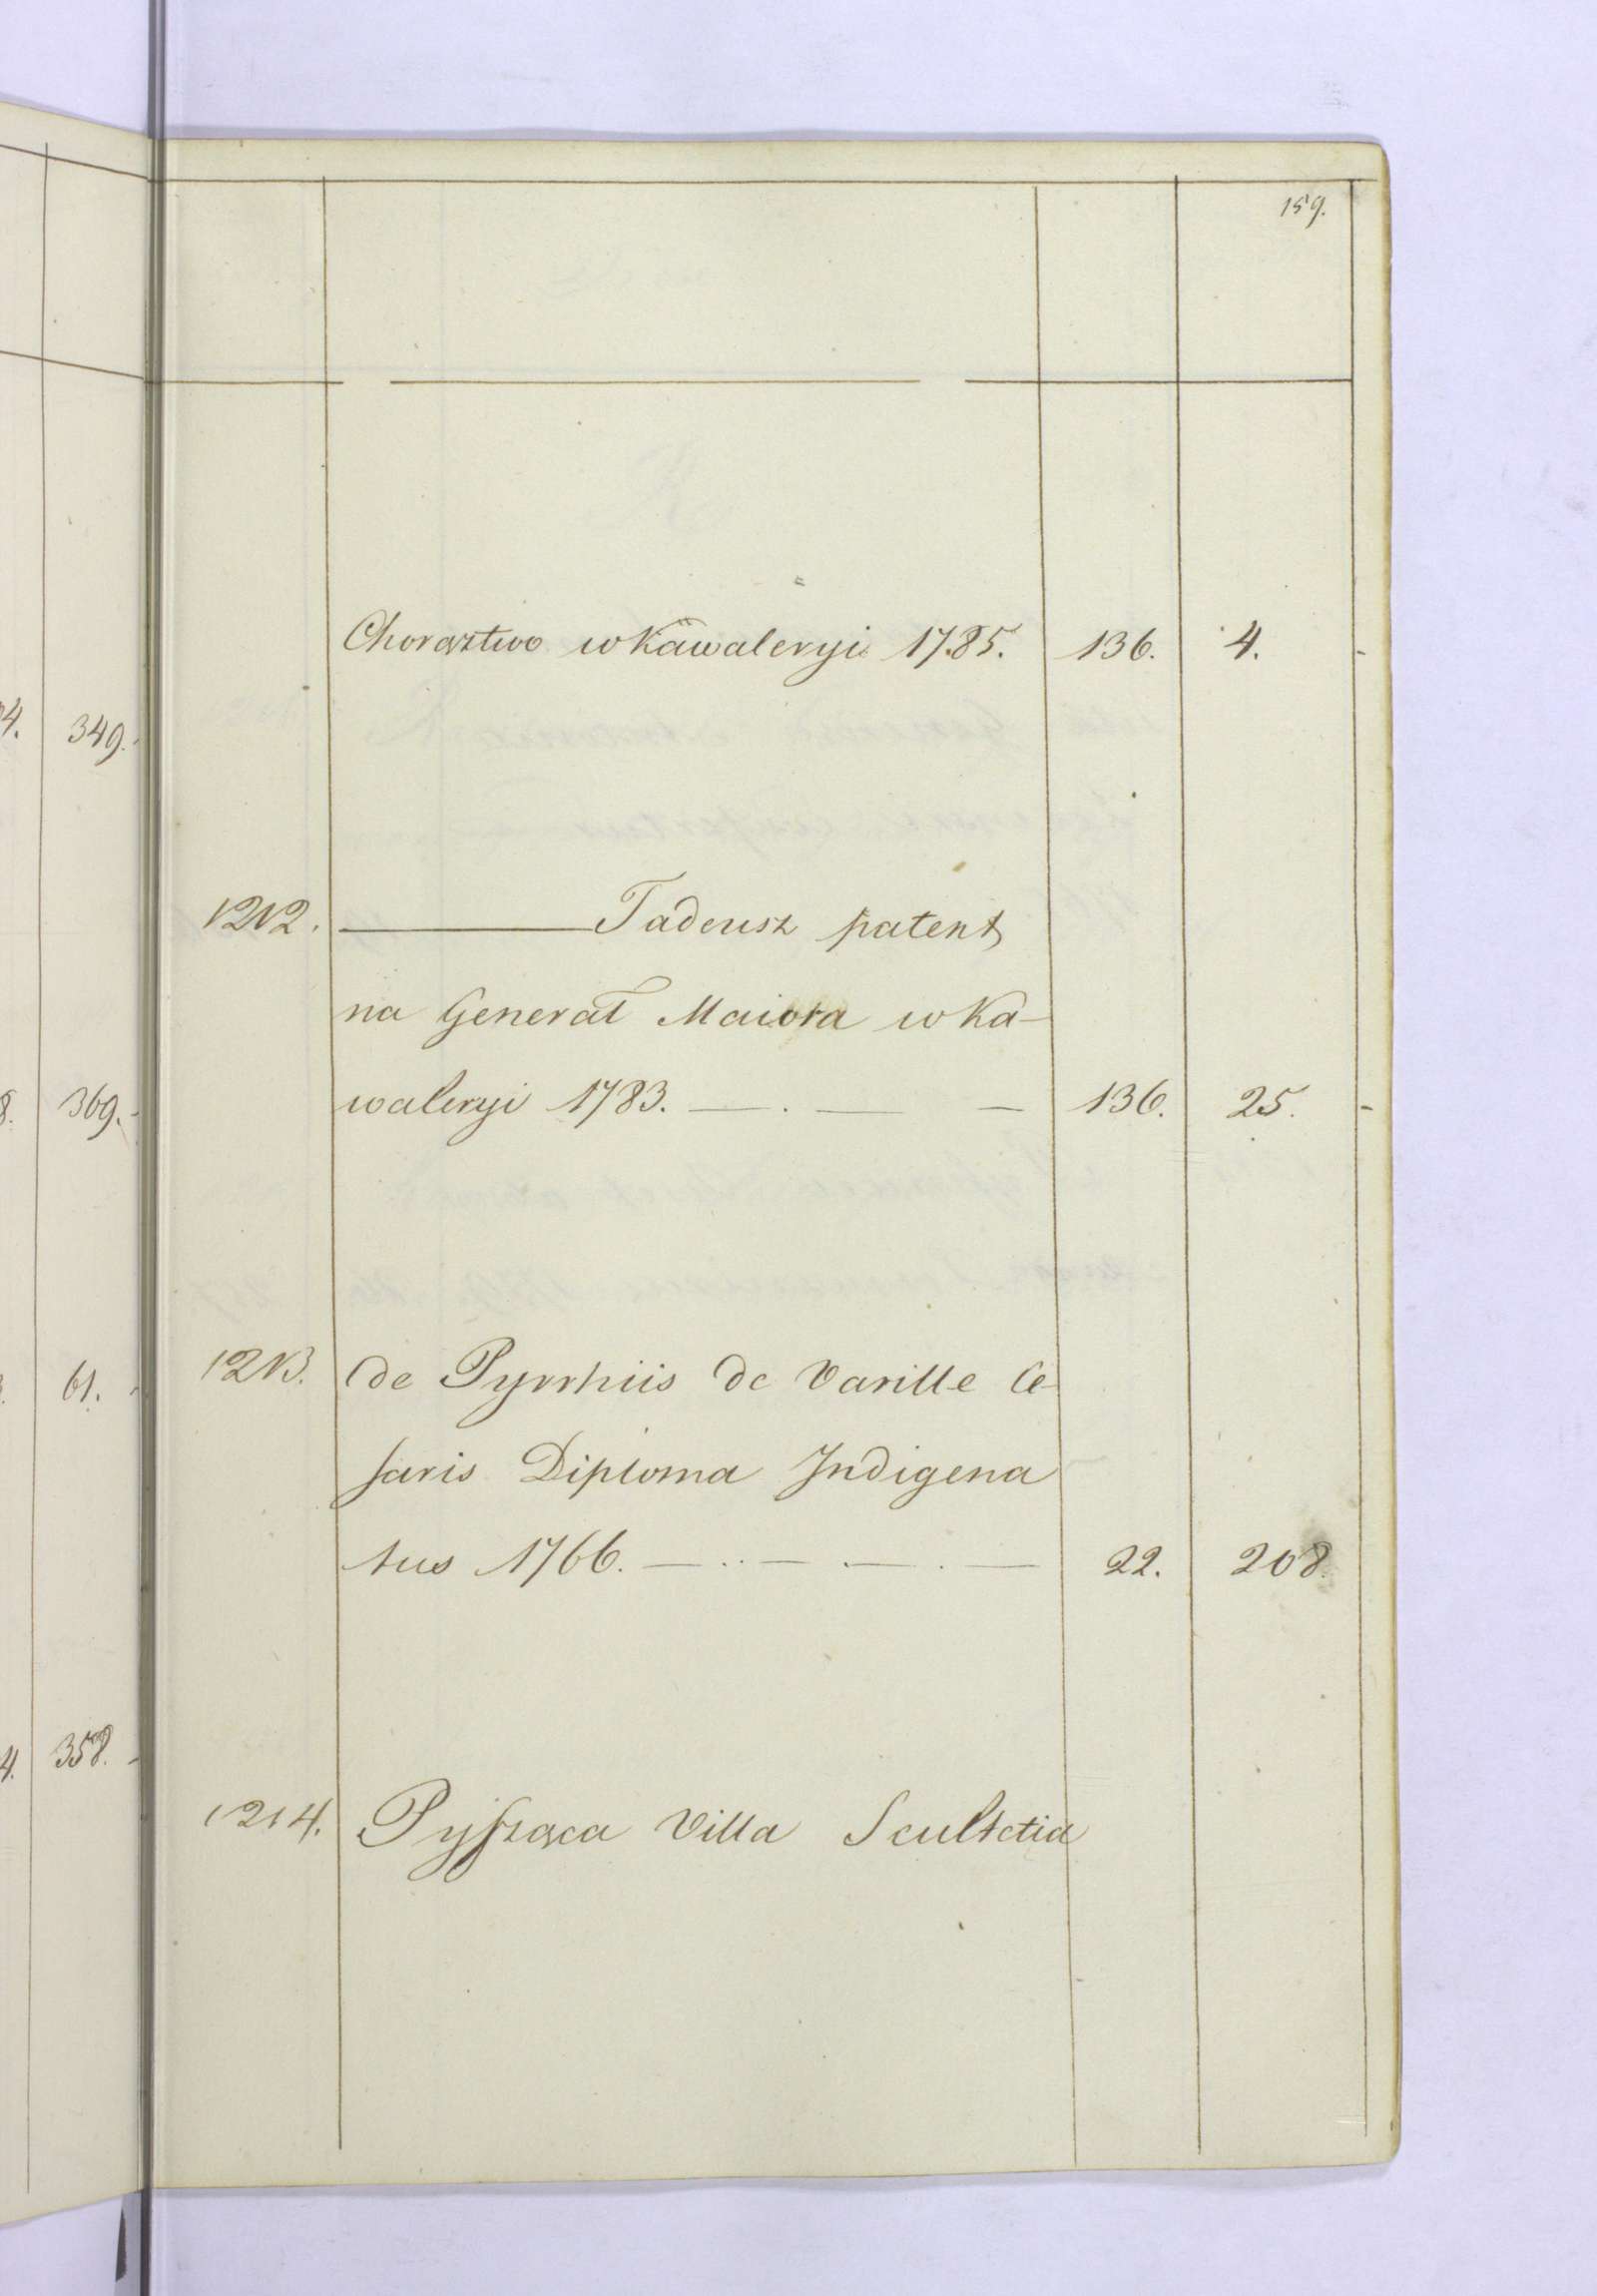 159.
Chorąztwo w Kawaleryi 1785. 136. 4.
4. 349.
1212. ——— Tadeusz patent
na Generał Maiora w Ka-
8. 369.
waleryi 1783. — . — — 136. 25.
1213. de Pyrrhiis de Varille Ce-
61.
saris Diploma Indigena
tus 1766. — . . — . — . — 22. 208.
4. 358.
1214. Pysząca Villa Scultetia